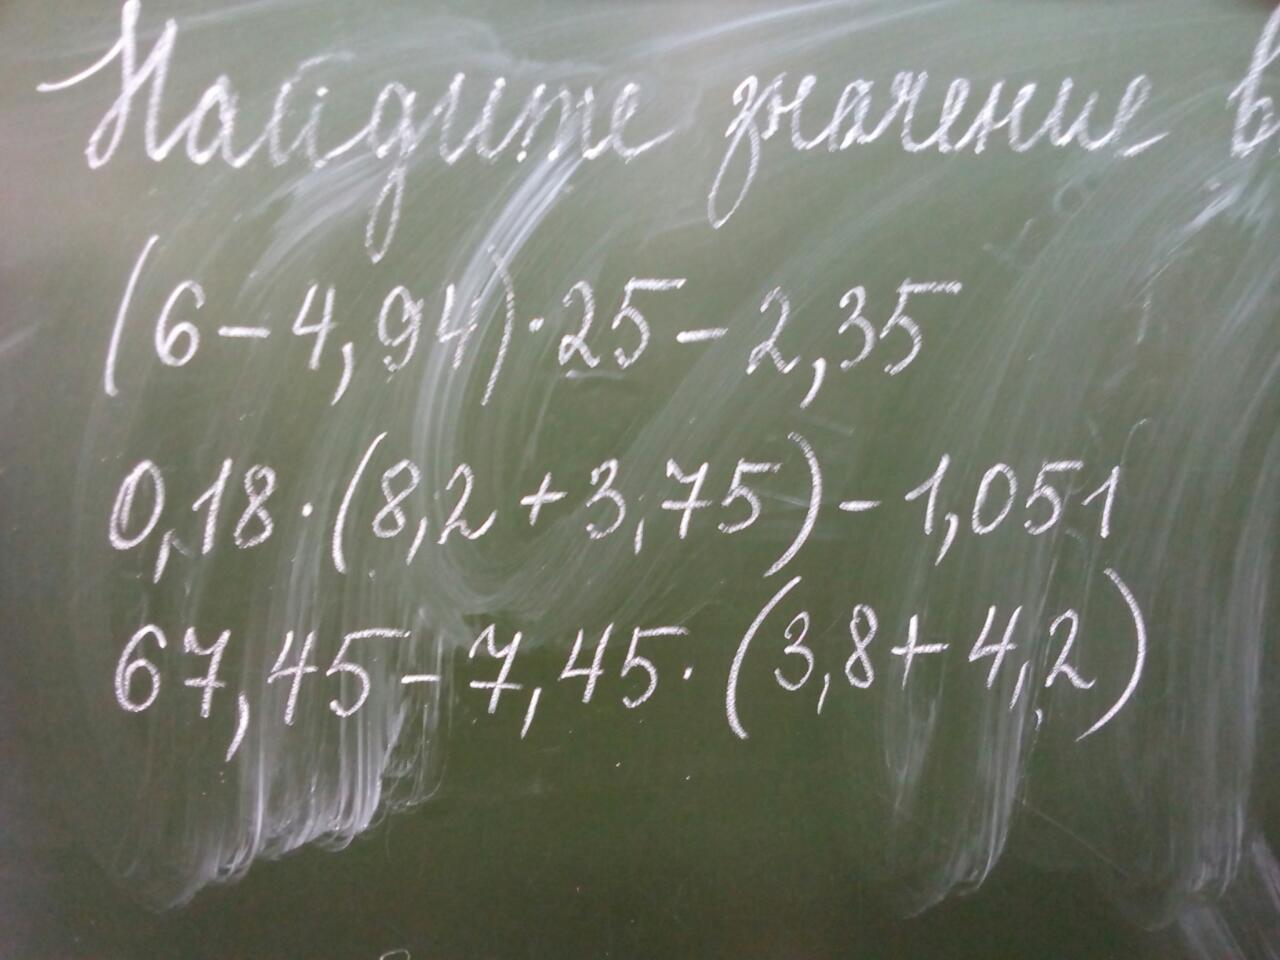 Найдите значение
(6-4,94)·25-2,35
0,18·(8,2+3,75)-1,051
67,45-7,45·(3,8+4,2)